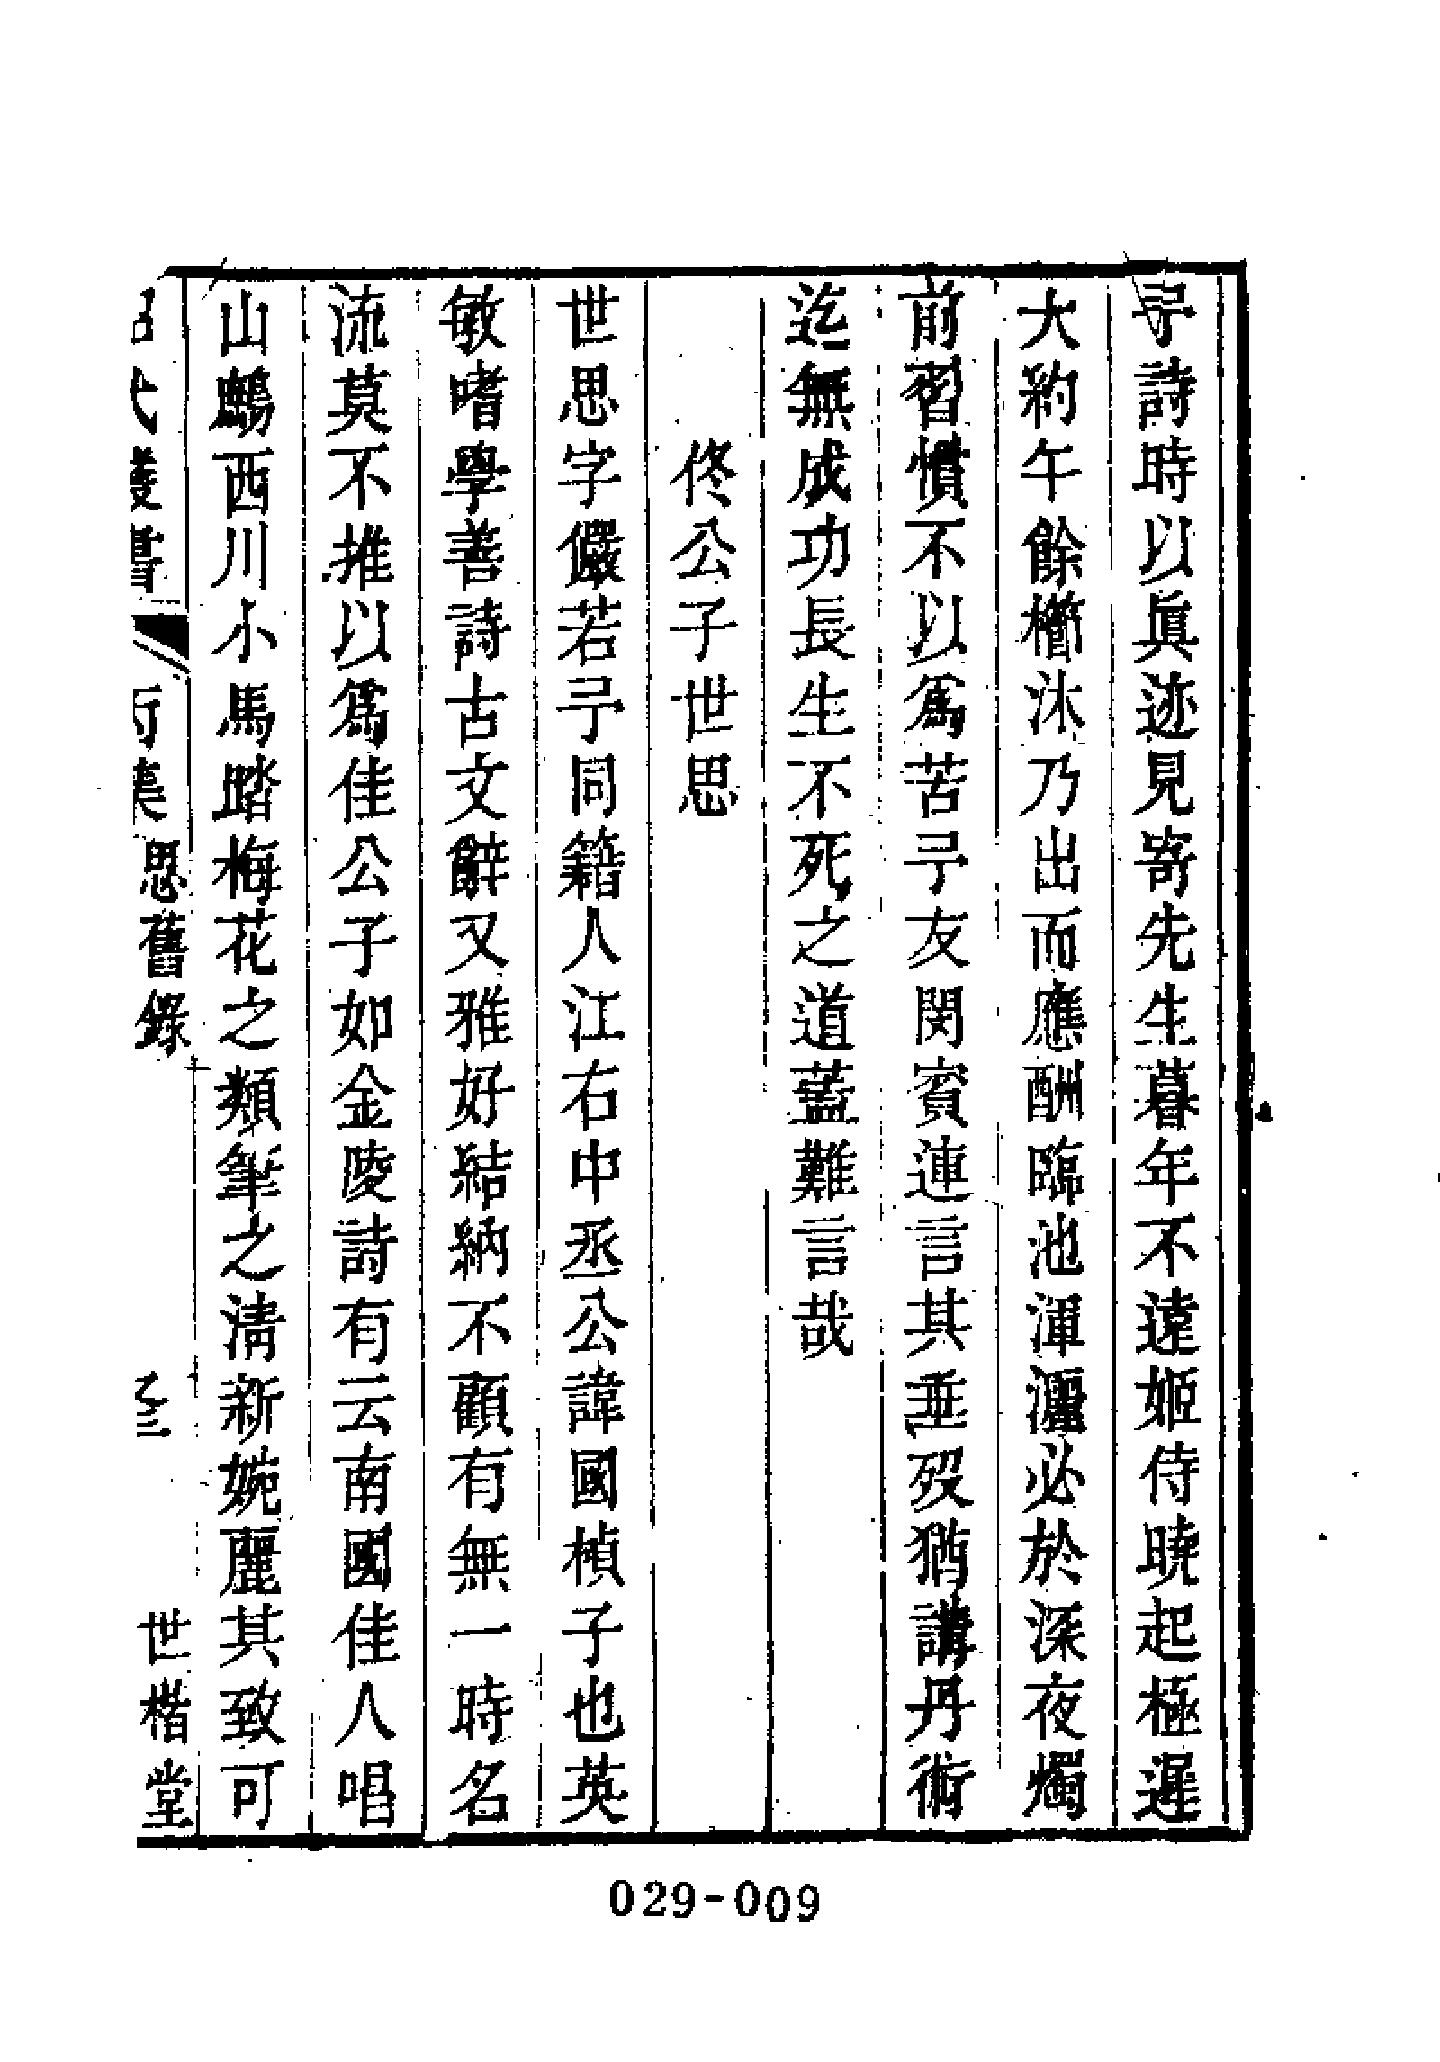 予詩時以眞迹見寄先生暮年不遠姬侍曉起極遲
大約午餘櫛沐乃出而應酬臨池渾灑必於深夜燭
前習慣不以爲苦予友閔賓連言其垂歿猶講丹術
迄無成功長生不死之道蓋難言哉
佟公子世思
世思字儼若予同籍人江右中丞公諱國楨子也英
敏嗜學善詩古文辭又雅好結納不顧有無一時名
流莫不推以爲佳公子如金陵詩有云南國佳人唱
山鷓西川小馬踏梅花之類筆之淸新婉麗其致可
昭代叢書 別集 思舊錄 世楷堂
029-009